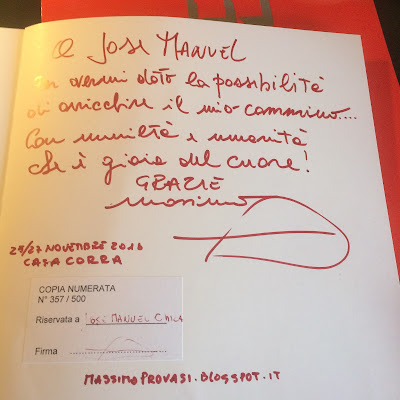 A JOSÈ MANUEL
per avermi dato la possibilità
di arricchire il mio cammino....
Con umiltà e umanità
che è gioia del cuore!
GRAZIE
Massimo
25/27 NOVEMBRE 2016
CASA CORRA
COPIA NUMERATA
N° 357 / 500
Riservata a JOSÈ MANUEL
Firma
MASSIMOPROVASI.BLOGSPOT.IT